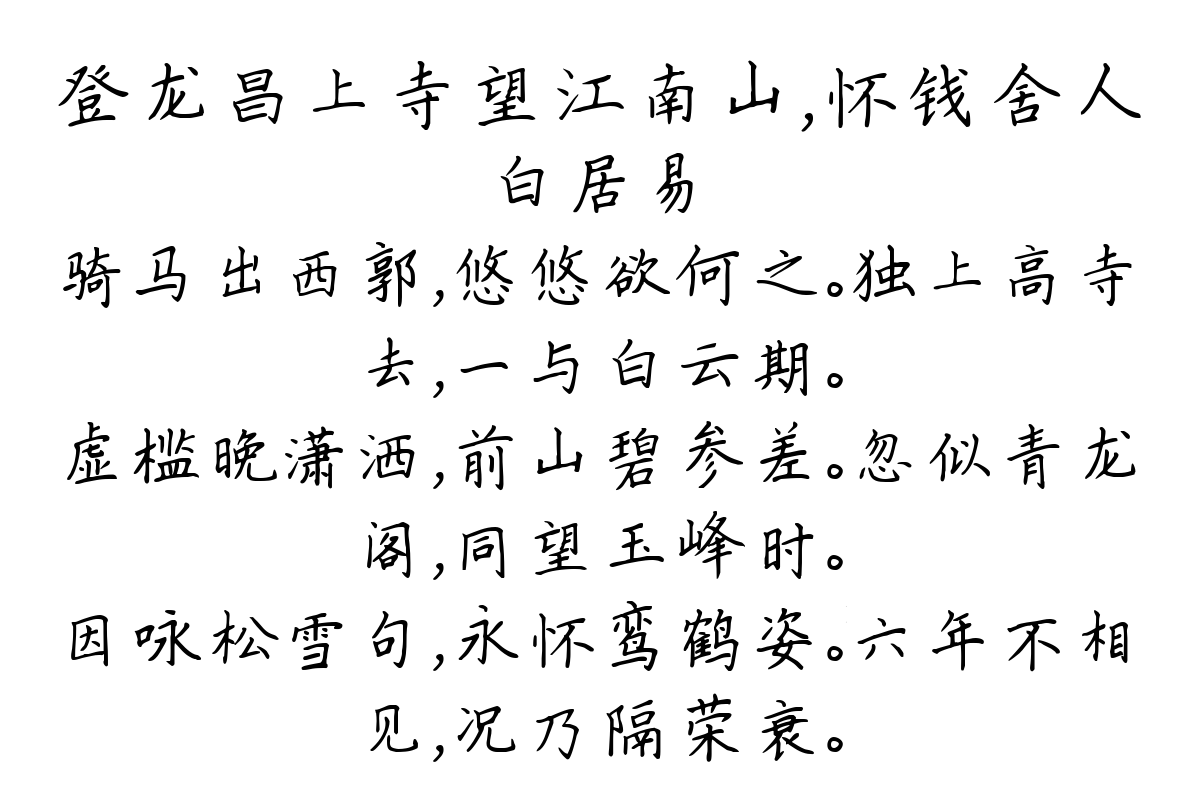 登龙昌上寺望江南山,怀钱舍人
白居易
骑马出西郭,悠悠欲何之。独上高寺
去,一与白云期。
虚槛晚潇洒,前山碧参差。忽似青龙
阁,同望玉峰时。
因咏松雪句,永怀鸾鹤姿。六年不相
见,况乃隔荣衰。